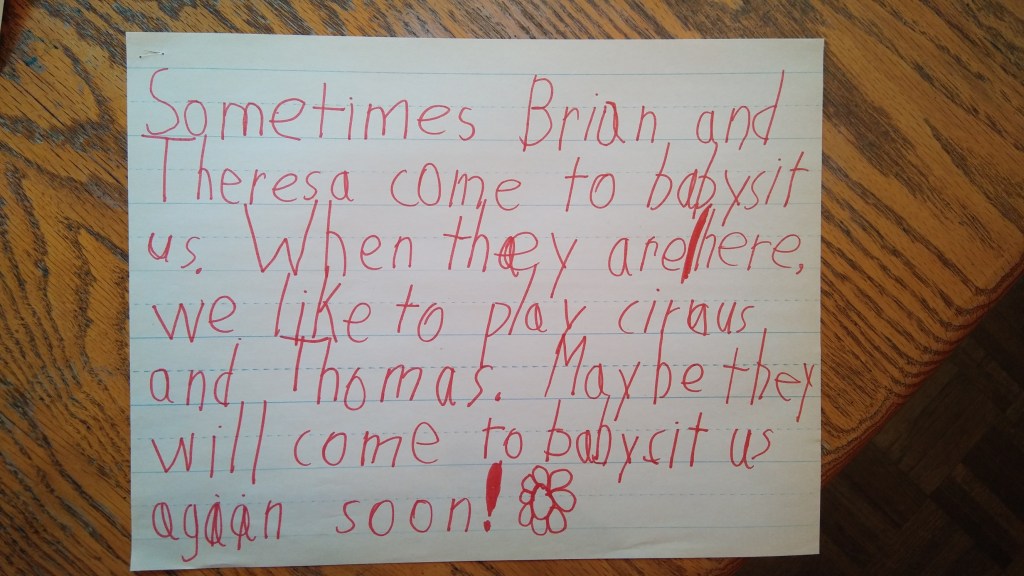 Sometimes Brian and
Theresa come to babysit
us. When they are here,
we like to play circus
and Thomas. Maybe they
will come to babysit us
again soon!